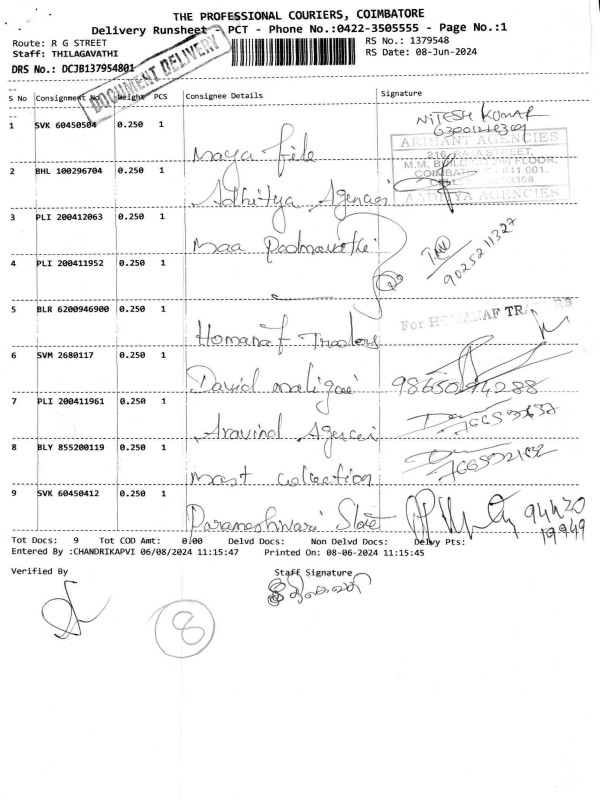 THE PROFESSIONAL COURIERS, COIMBATORE
Delivery Runsheet - PCT - Phone No.:0422-3505555 - Page No.:1
Route: R G STREET RS No.: 1379548
Staff: THILAGAVATHI RS Date: 08-Jun-2024
DRS No.: DCJB137954801
DOCUMENT DELIVERY
S No Consignment No Weight PCS Consignee Details Signature
1 SVK 60450504 0.250 1 Maya File NITESH KUMAR
ARIHANT AGENCIES
2 BHL 100296704 0.250 1 Adhitya Agenci
AADHITYA AGENCIES
3 PLI 200412063 0.250 1 Maa Padmavathi
9025211327
4 PLI 200411952 0.250 1
5 BLR 6200946900 0.250 1 Homanaf Traders For HOMANAF TRADERS
6 SVM 2680117 0.250 1 David maligai 9865094288
7 PLI 200411961 0.250 1 Aravind Agencei
8 BLY 855200119 0.250 1 Mast collection
9 SVK 60450412 0.250 1 Parameshwari Store 94420
19949
Tot Docs: 9 Tot COD Amt: 0.00 Delvd Docs: Non Delvd Docs: Delvy Pts:
Entered By :CHANDRIKAPVI 06/08/2024 11:15:47 Printed On: 08-06-2024 11:15:45
Verified By Staff Signature
8